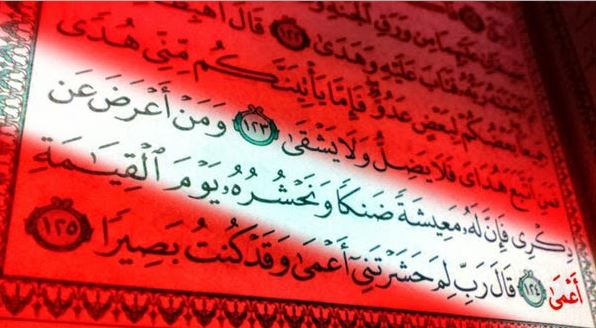 عَلَيۡهِمَا مِن وَرَقِ ٱلۡجَنَّةِ
رَبُّهُۥ فَتَابَ عَلَيۡهِ وَهَدَىٰ ١٢٢ قَالَ ٱهۡبِطَا
بَعۡضُكُمۡ لِبَعۡضٍ عَدُوٌّۖ فَإِمَّا يَأۡتِيَنَّكُم مِّنِّي هُدٗى
فَمَنِ ٱتَّبَعَ هُدَايَ فَلَا يَضِلُّ وَلَا يَشۡقَىٰ ١٢٣ وَمَنۡ أَعۡرَضَ عَن
ذِكۡرِي فَإِنَّ لَهُۥ مَعِيشَةٗ ضَنكٗا وَنَحۡشُرُهُۥ يَوۡمَ ٱلۡقِيَٰمَةِ
أَعۡمَىٰ ١٢٤ قَالَ رَبِّ لِمَ حَشَرۡتَنِيٓ أَعۡمَىٰ وَقَدۡ كُنتُ بَصِيرٗا ١٢٥